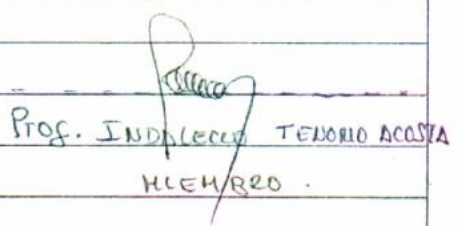 Prof. INDALECIO TENORIO ACOSTA
MIEMBRO.